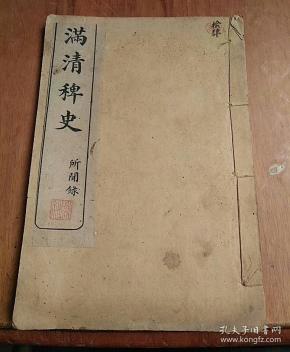 滿清稗史
所聞錄
孔夫子旧书网
www.kongfz.com